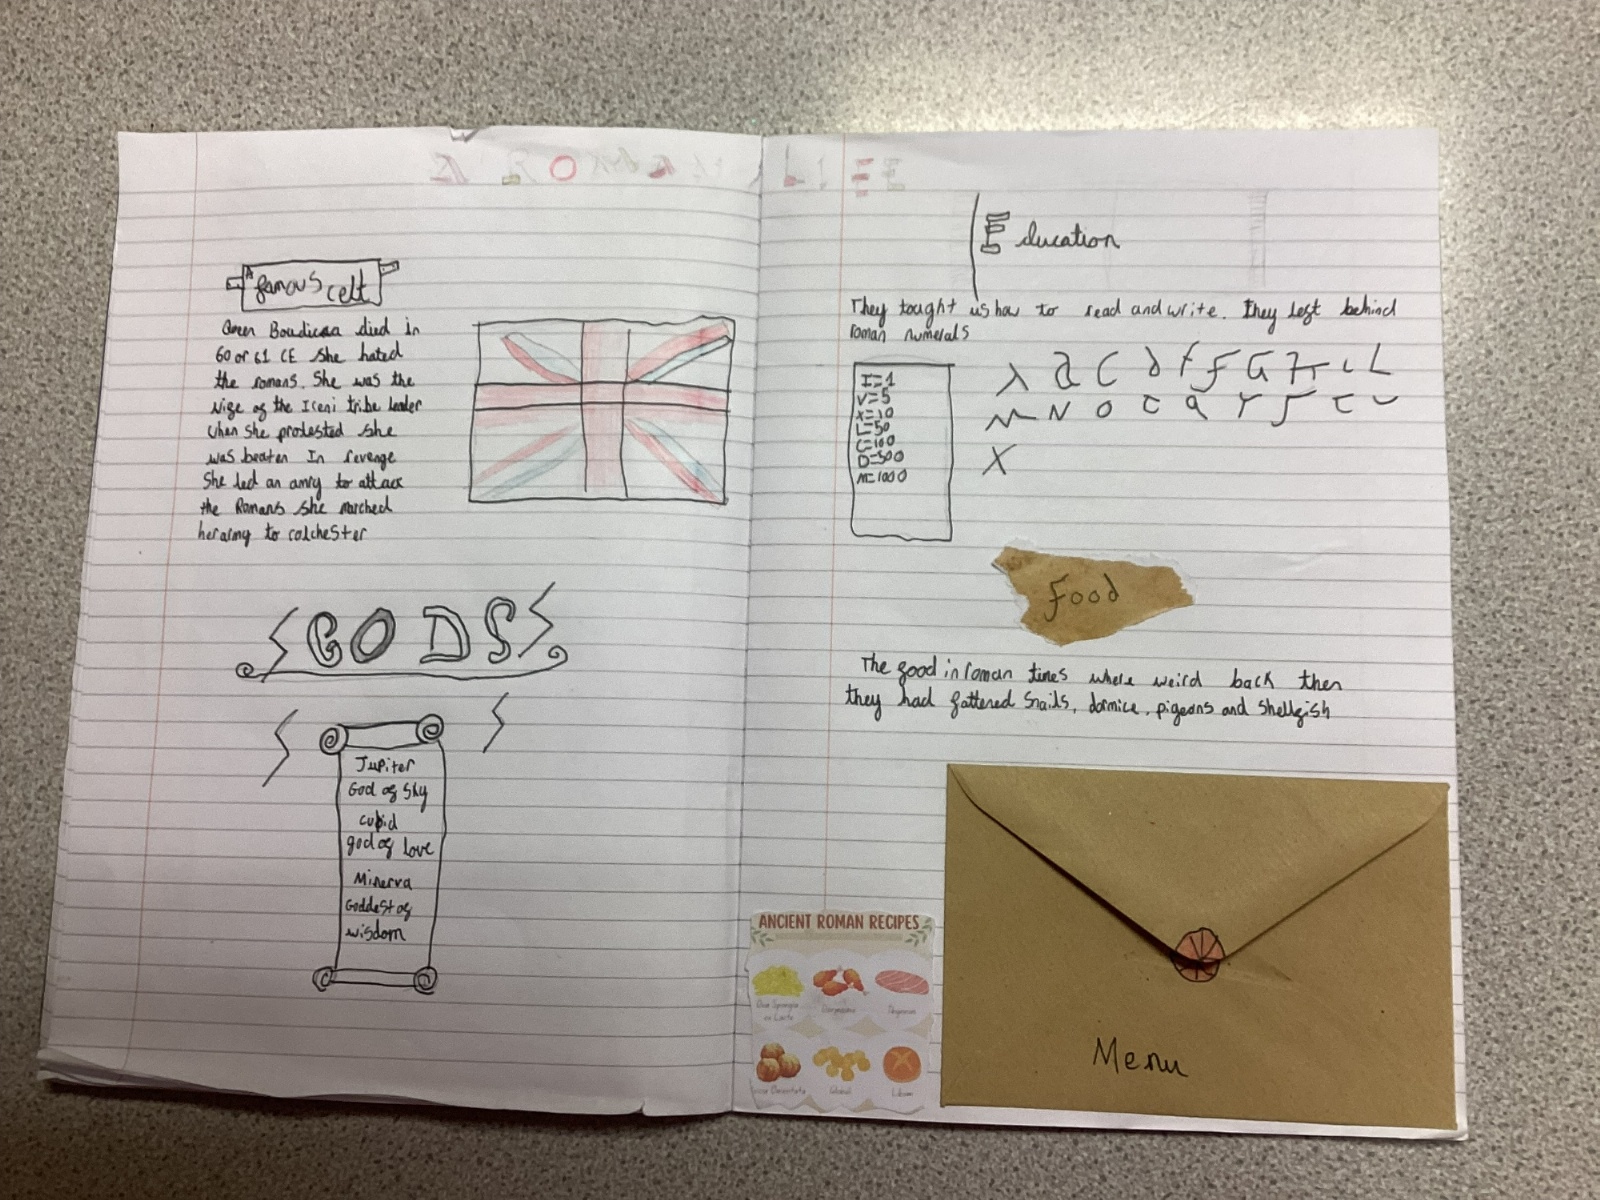 A famous celt
Queen Boudicaa died in
60 or 61 CE She hated
the romans. She was the
Wife of the Iceni tribe leader
When she protested she
was beaten In revenge
She led an amry to attack
the Romans she marched
her army to colchester
GODS
Jupiter
God of Sky
cupid
god of Love
Minerva
Goddest of
wisdom
Education
They tought us how to read and write. They left behind
roman numerals
I=1
V=5
X=10
L=50
C=100
D=500
M=1000
N O
X
Food
The food in roman times where weird back then
they had fattered Snails, dormice, pigeons and Shellfish
ANCIENT ROMAN RECIPES
Libum
Menu